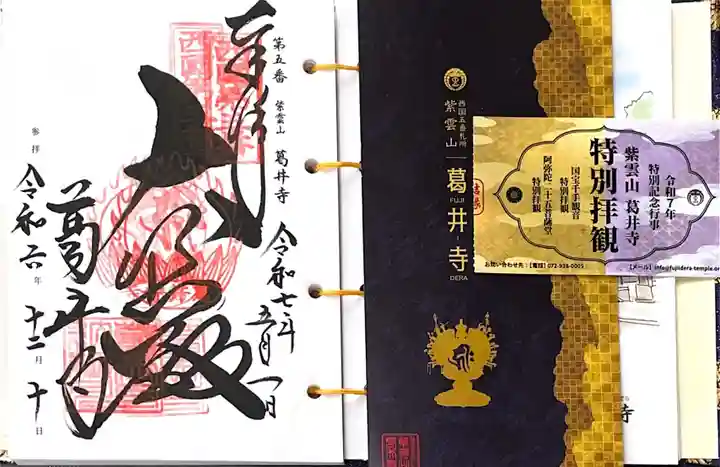 奉拝
第五番 紫雲山 葛井寺
大悲殿
令和七年
五月一日
葛井寺
参拝 令和六年十二月十日
西国五番札所
紫雲山
葛井寺
FUJI-DERA
令和7年
特別記念行事
紫雲山 葛井寺
特別拝観
国宝千手観音
特別拝観
阿弥陀二十五菩薩堂
特別拝観
お問い合わせ先：【電話】072-938-0005
【メール】info@fujidera-temple.or
寺